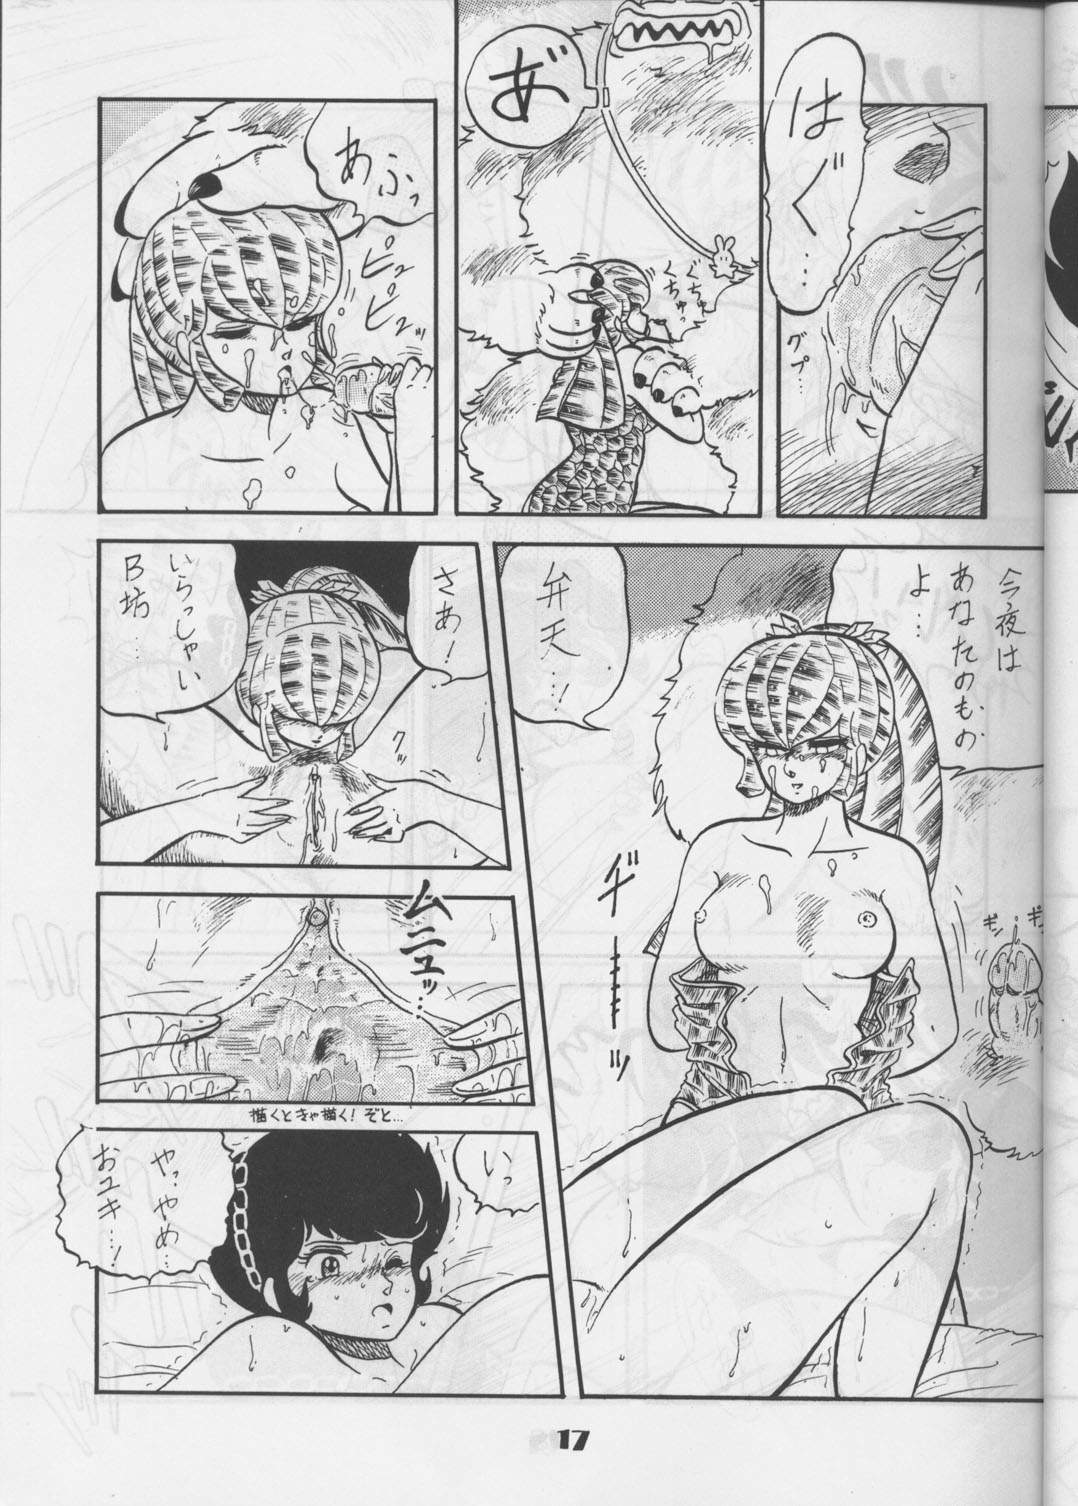 はぐ…
グプ…
あ゛
くちゅ
くちゅっ
あふっ
ピュ
ピピュッ
今夜は
あなたのもの
よ…
弁天…!
ギ──ッ
ギン
ギン
さあ!
いらっしゃい
B坊…
クッ
ムニュッ…
描くときゃ描く!ぞと…
いっ
やっやめ…
おユキ…!
17